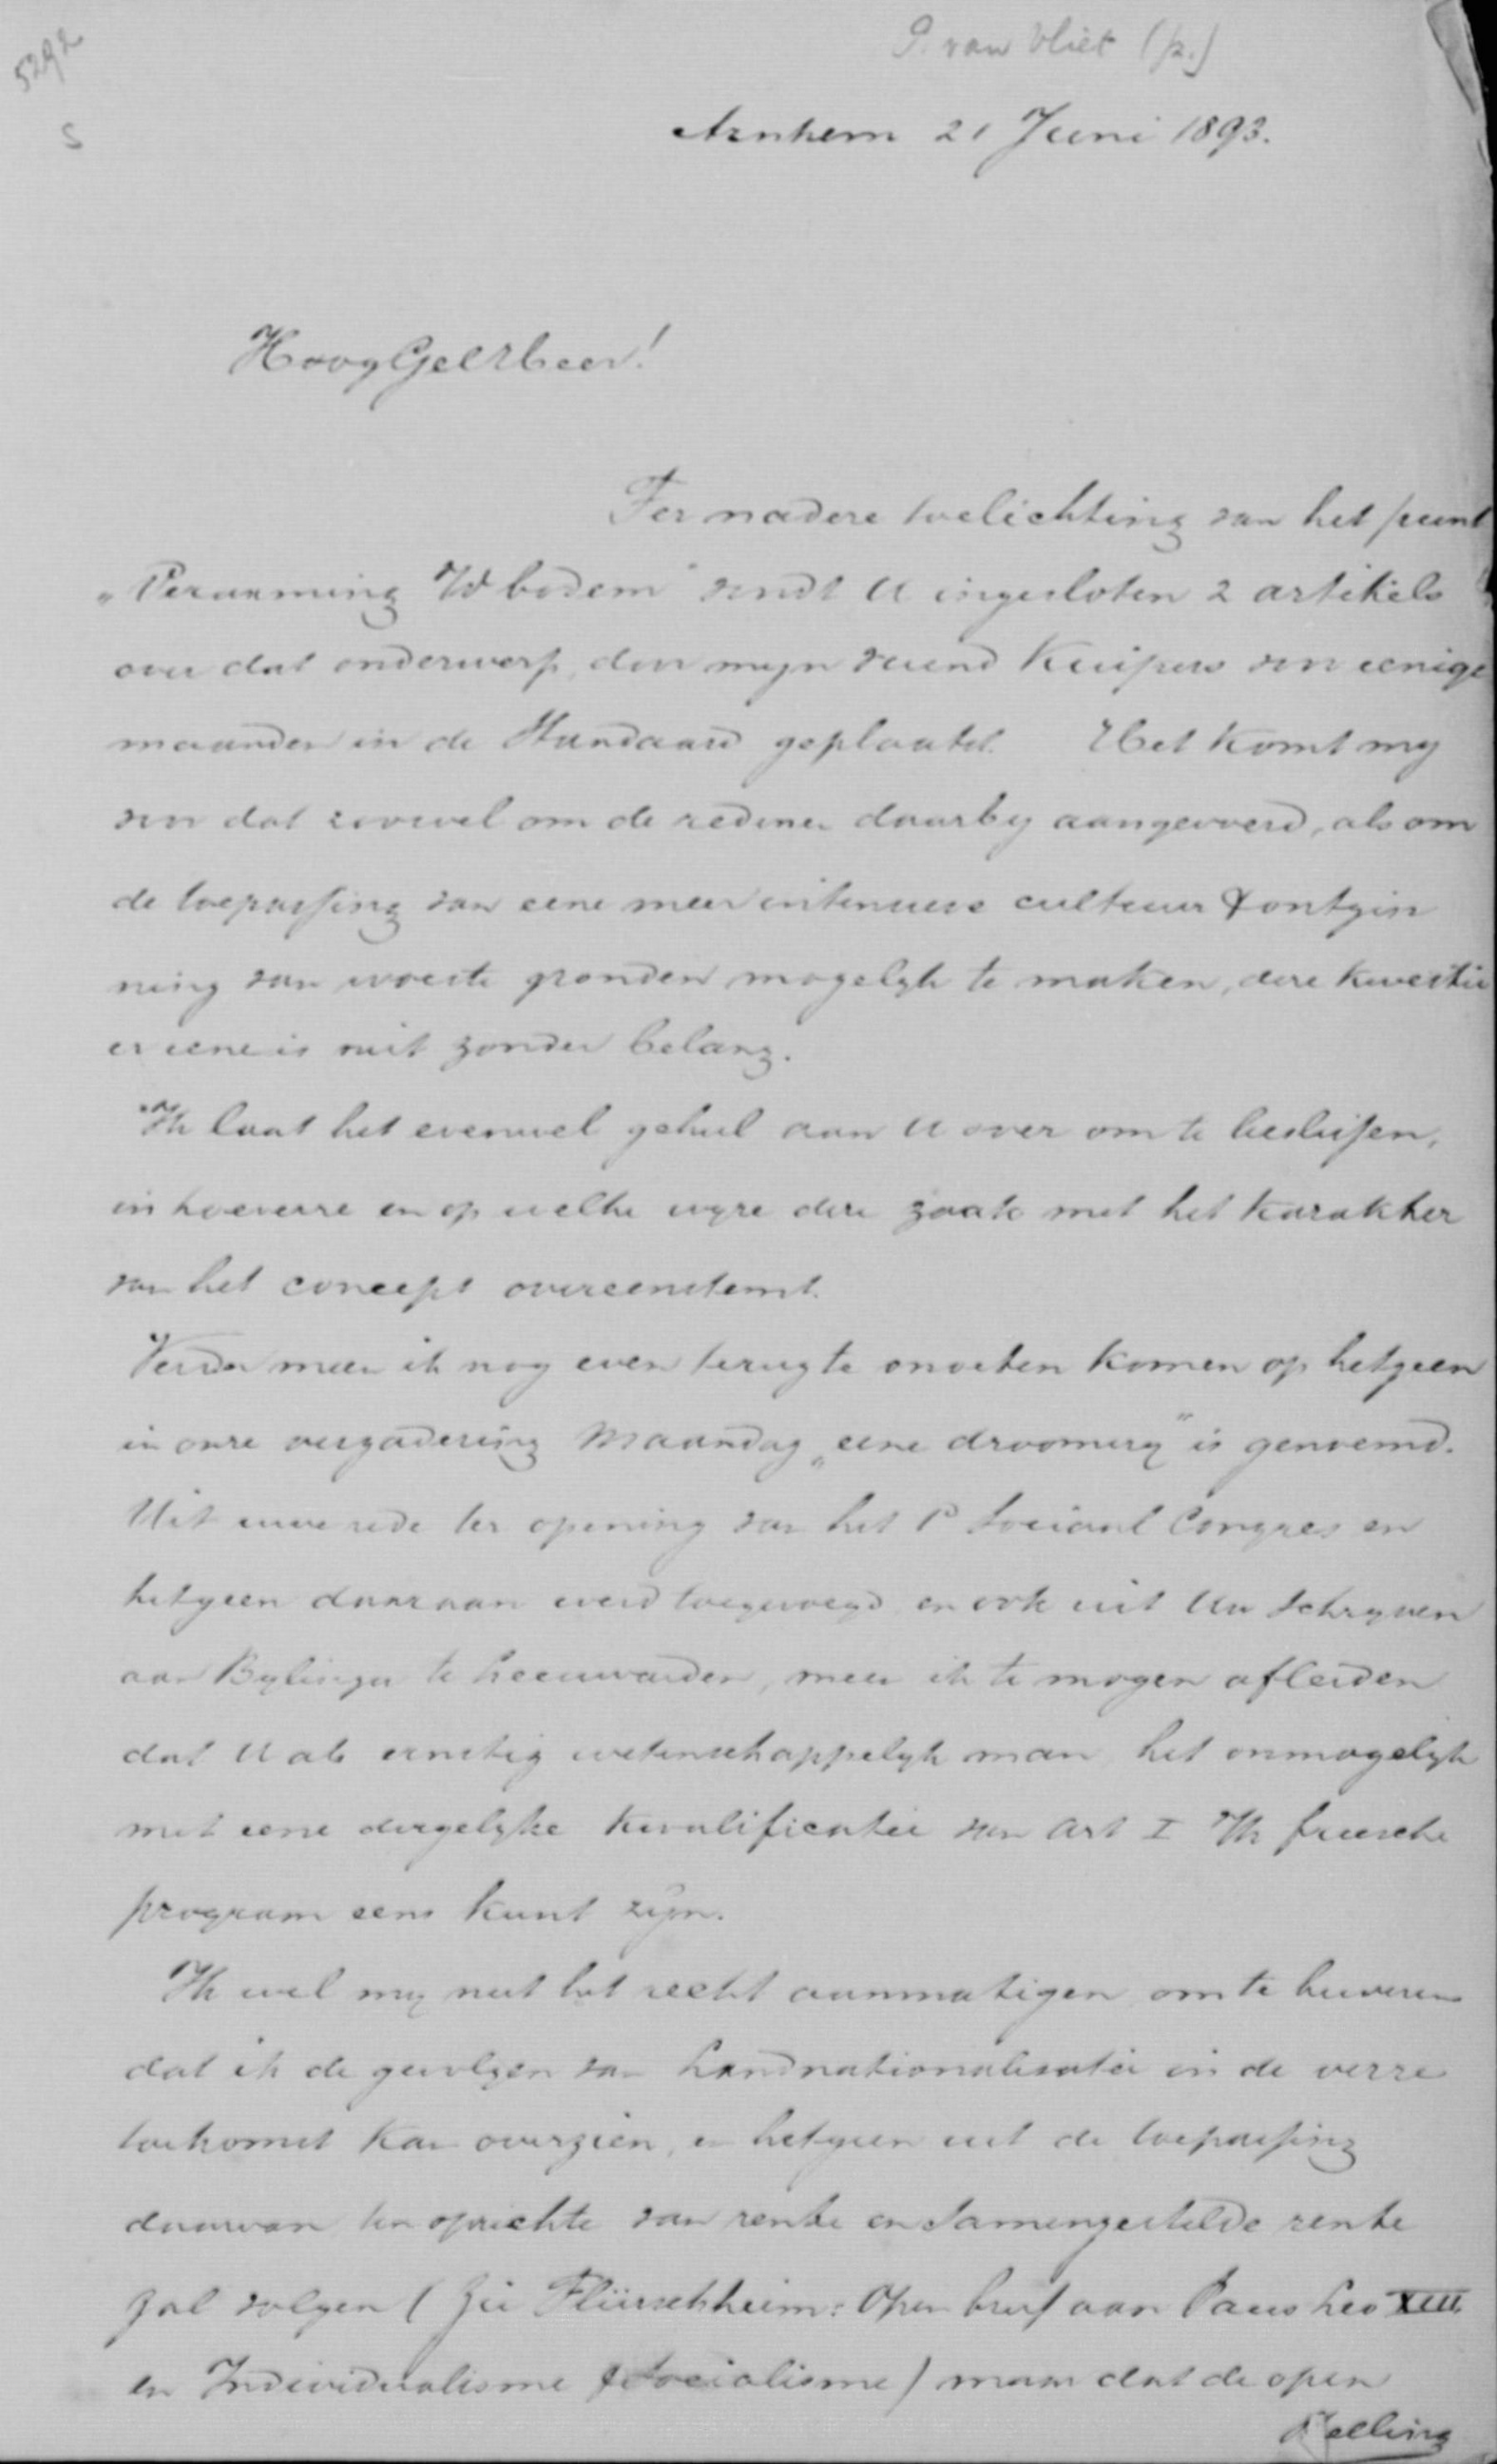 5292
S
P. van Vliet (p.)
Arnhem 21 Juni 1893.
HoogGel. Heer!
Ter nadere toelichting van het punt
„Verarming v/d bodem" zendt U ingesloten 2 artikels
over dat onderwerp, door mijn vriend Kuipers voor eenige
maanden in de Standaard geplaatst. Het komt mij
voor dat zoowel om de redenen daarbij aangevoerd, als om
de toepassing van eene meer intensieve cultuur & ontgin
ning van woeste gronden mogelijk te maken, deze kwestie
er eene is niet zonder belang.
Ik laat het evenwel geheel aan U over om te beslissen,
in hoeverre en op welke wijze deze zaak met het karakter
van het concept overeenstemt.
Verder meen ik nog even terug te moeten komen op hetgeen
in onze vergadering Maandag „eene droomerij" is genoemd.
Uit uwe rede ter opening van het 1e Sociaal Congres en
hetgeen daaraan werd toegevoegd en ook uit Uw schrijven
aan Bijlinga te Leeuwarden, meen ik te mogen afleiden
dat U als ernstig wetenschappelijk man het onmogelijk
met eene dergelijke kwalificatie van Art I v/h friesche
program eens kunt zijn.
Ik wil mij niet het recht aanmatigen om te beweren
dat ik de gevolgen van Landnationalisatie in de verre
toekomst kan overzien, en hetgeen uit de toepassing
daarvan ten opzichte van rente en Samengestelde rente
zal volgen (zie Flürschheim: Open brief aan Paus Leo XIII
en Individualisme & Socialisme) maar dat de open
stelling